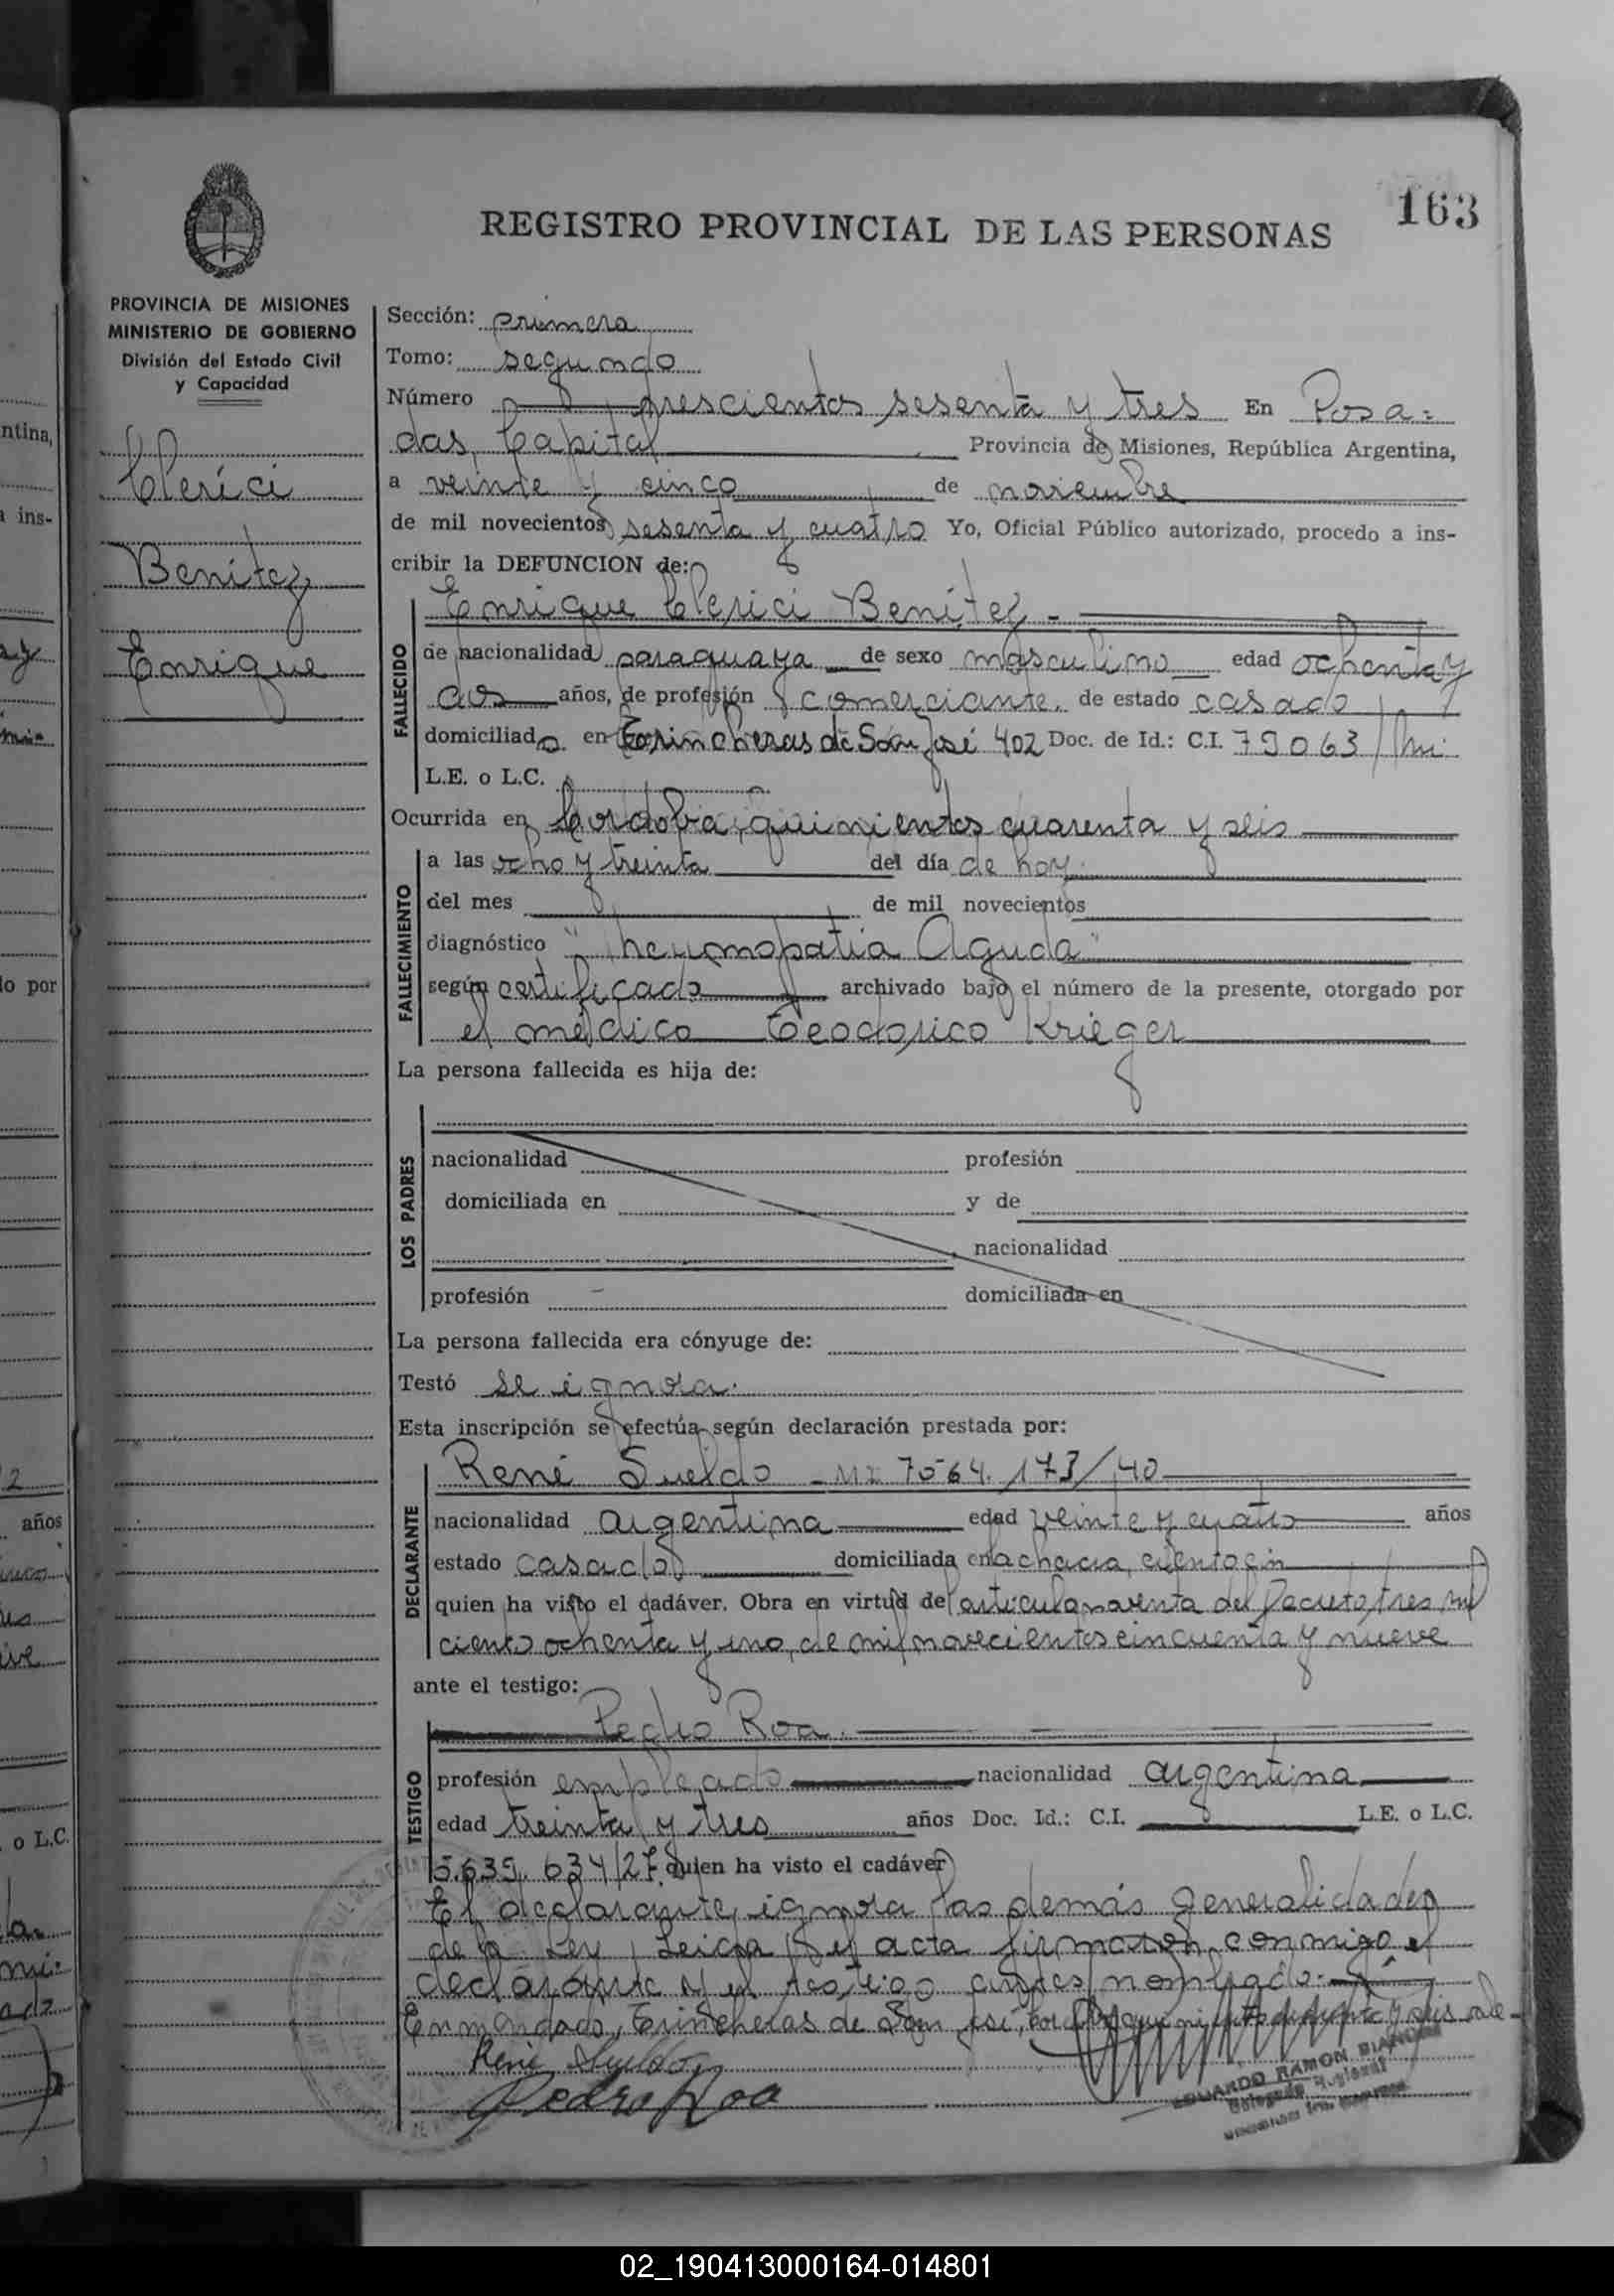 163
REGISTRO PROVINCIAL DE LAS PERSONAS
PROVINCIA DE MISIONES
MINISTERIO DE GOBIERNO
División del Estado Civil
y Capacidad
Clerici
Benitez
Enrique
Sección: primera
Tomo: segundo
Número trescientos sesenta y tres En Posa=
das, Capital Provincia de Misiones, República Argentina,
a veinte y cinco de noviembre
de mil novecientos sesenta y cuatro Yo, Oficial Público autorizado, procedo a ins-
cribir la DEFUNCION de:
Enrique Clerici Benitez -
FALLECIDO
de nacionalidad paraguaya de sexo masculino edad ochenta y
dos años, de profesión comerciante. de estado casado
domiciliado en Trincheras de San José 402 Doc. de Id.: C.I. 79063/Mi
L.E. o L.C.
Ocurrida en Cordoba, quinientos cuarenta y seis
FALLECIMIENTO
a las ocho y treinta del día de hoy.
del mes de mil novecientos
diagnóstico "Neumopatia Aguda"
según certificado archivado bajo el número de la presente, otorgado por
el médico Teodorico Krieger
La persona fallecida es hija de:
LOS PADRES
nacionalidad profesión
domiciliada en y de
nacionalidad
profesión domiciliada en
La persona fallecida era cónyuge de:
Testó se ignora.
Esta inscripción se efectúa según declaración prestada por:
René Sueldo - MI 7564.173/40
DECLARANTE
nacionalidad argentina edad veinte y cuatro años
estado casado domiciliada en chacra, ciento
quien ha visto el cadáver. Obra en virtud del articulo noventa del Decreto tres mil
ciento ochenta y uno, de mil novecientos cincuenta y nueve
ante el testigo:
Pedro Roa.
TESTIGO
profesión empleado nacionalidad argentina
edad treinta y tres años Doc. Id.: C.I. L.E. o L.C.
5.639.634/27 quien ha visto el cadáver
El declarante, ignora las demás generalidades
de la Ley, Leida el acta firmaron conmigo el
declarante y el testigo antes nombrado.-
Enmendado, Trincheras de San José, quinientos cuarenta y seis vale-
René Sueldo
Pedro Roa
EDUARDO RAMON
Delegado Regional
02_190413000164-014801